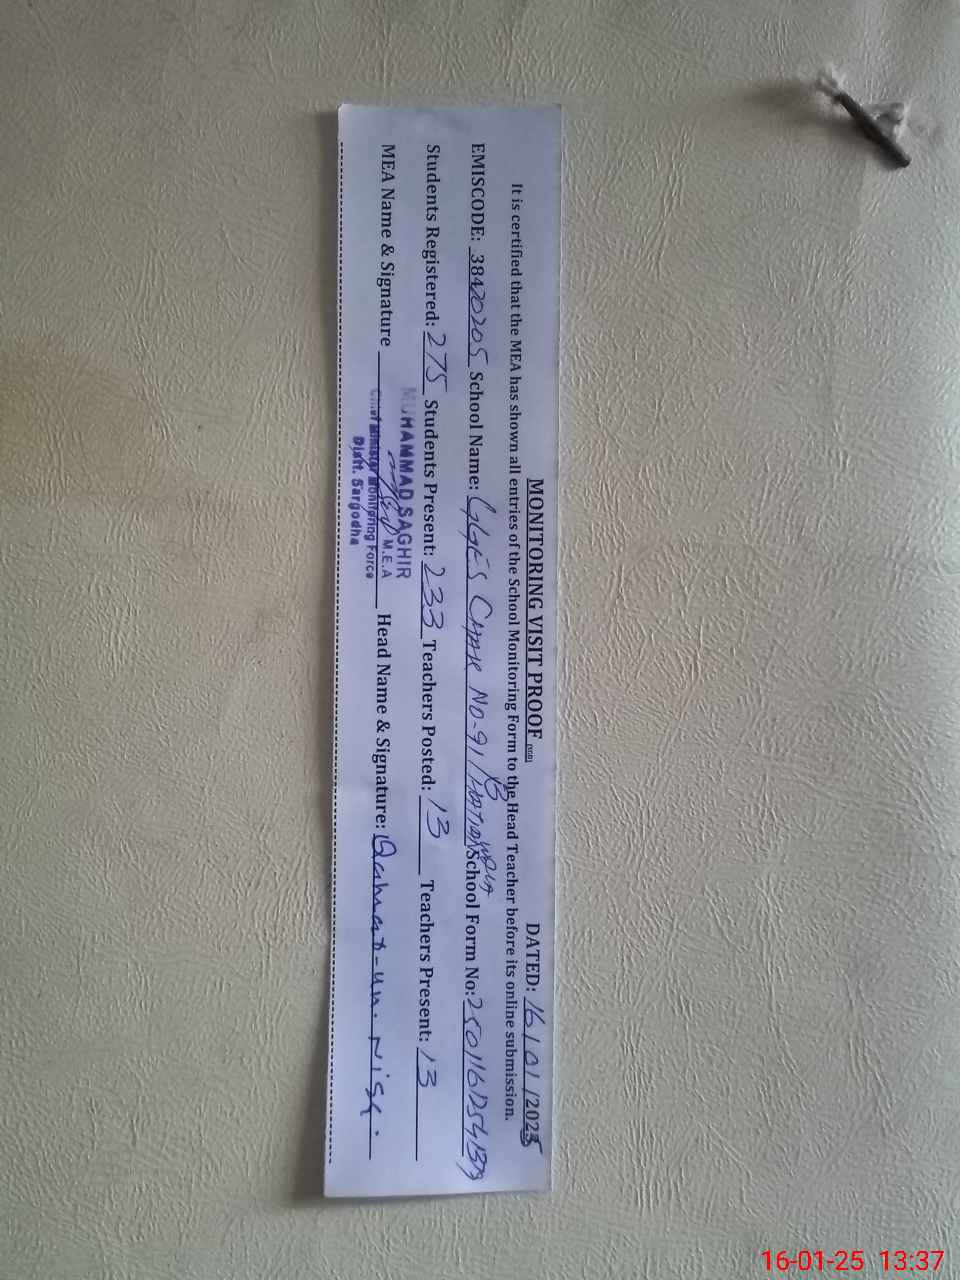 MONITORING VISIT PROOF (SGD) DATED: 16/01/2025
It is certified that the MEA has shown all entries of the School Monitoring Form to the Head Teacher before its online submission.
EMISCODE: 38420205 School Name: GGES CHAK NO-91/B School Form No:
Students Registered: 275 Students Present: 233 Teachers Posted: 13 Teachers Present: 13
MUHAMMAD SAGHIR
M.E.A
MEA Name & Signature Head Name & Signature: Qamar-un-Nisa.
Chief Minister Monitoring Force
Distt. Sargodha
16-01-25 13:37